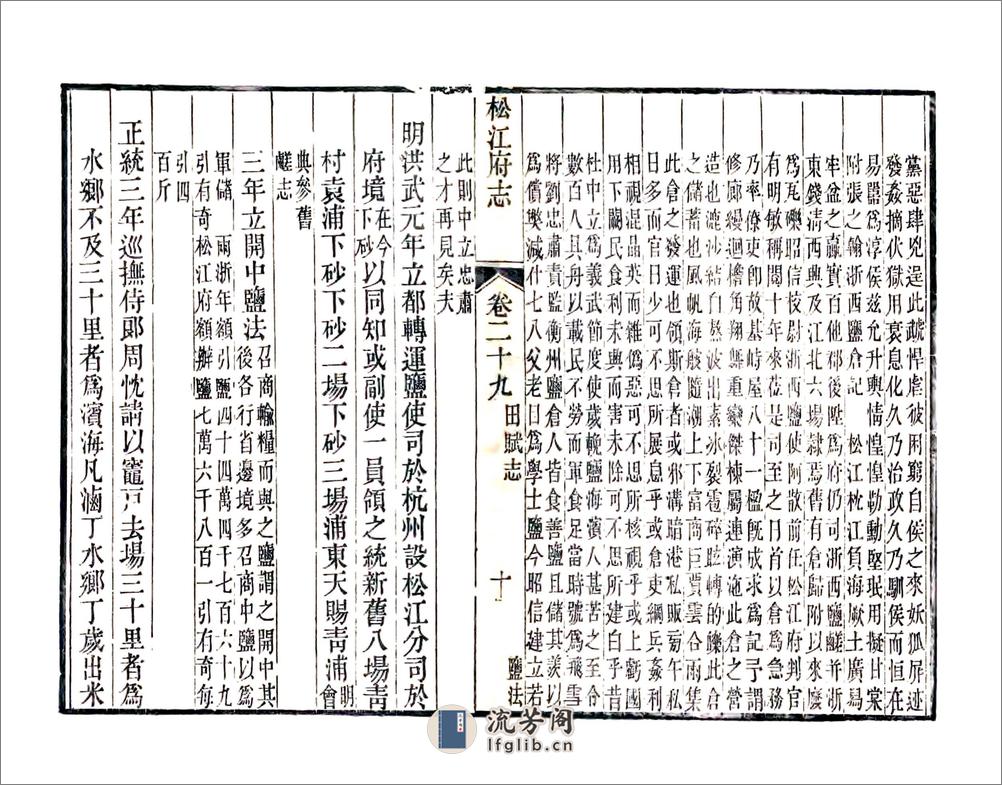 黨惡肆兇逞此蔬悍虐彼困窮自侯之來妖狐屏迹
發姦摘伏獄用衰息化久乃治政久乃馴侯而恒在
易嚚爲淳侯兹允升輿情惶惶勒勳堅珉用擬甘棠
附張之翰浙西鹽倉記　松江枕江負海厥土廣易
牢盆之贏實百他郡後陞爲府仍司浙西鹽醝并浙
東錢清西典及江北六場隷焉舊有倉歸附以來廢
爲瓦礫昭信校尉浙西鹽使阿散前任松江府判官
有明敏稱閱十年來莅是司至之日首以倉爲急務
乃率僚吏卽故基峙屋八十一楹旣成求爲記予謂
修廊繚迴檐角翔舞重欒傑棟屬連演迤此倉之營
造也漉沙結白熬波出素冰裂雹碎眩轉的皪此倉
之儲蓄也風帆海艘隨潮上下富商巨賈雲合雨集
此倉之發運也領斯倉者或邪溝暗港私販旁午私
日多而官日少可不思所展息乎或倉吏綱兵姦利
相視混晶英而雜僞惡可不思所核視乎或上虧國
用下闕民食利未興而害未除可不思所建白乎昔
杜中立爲義武節度使歲輓鹽海濱人甚苦之至令
數百人具舟以載民不勞而軍食足當時號爲飛雪
將劉忠肅責監衡州鹽倉人皆食善鹽且儲其羨以
爲償獘減什七八父老目爲學士鹽今昭信建立若
此則中立忠肅
之才再見矣夫
明洪武元年立都轉運鹽使司於杭州設松江分司於
府境在今下砂以同知或副使一員領之統新舊八場靑
村袁浦下砂下砂二場下砂三場浦東天賜靑浦明曾
典參舊
鹾志
三年立開中鹽法召商輸糧而與之鹽謂之開中其
後各行省邊境多召商中鹽以爲
軍儲　兩浙年額引鹽四十四萬四千七百六十九
引有奇松江府額辦鹽七萬六千八百一引有奇每
引四
百斤
正統三年巡撫侍郎周忱請以竈戸去場三十里者爲
水鄉不及三十里者爲濱海凡滷丁水鄉丁歲出米
松江府志
卷二十九
田賦志
十
鹽法
流芳阁
lfglib.cn